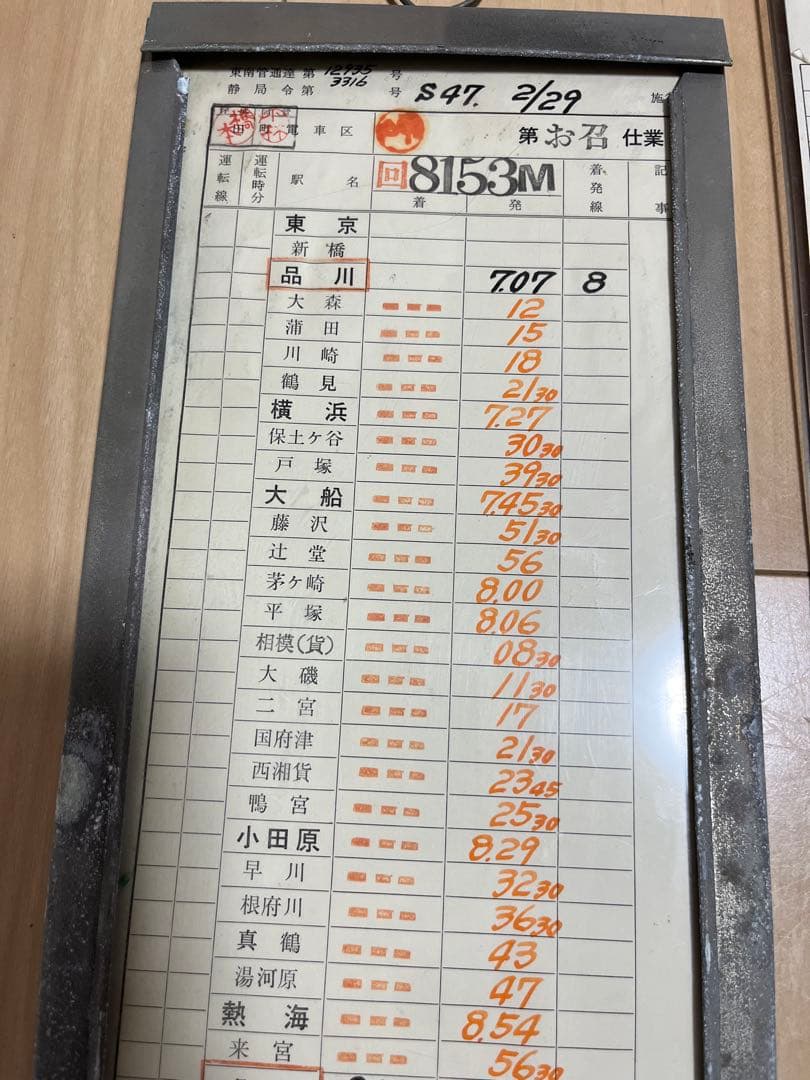 東南管通達 第 12935 号
静局令第 3316 号 S47. 2/29 施
田町電車区 第 お召 仕業
運転線 運転時分 駅名 回8153M 着発線 記事
着 発
東京
新橋
品川 7.07 8
大森 12
蒲田 15
川崎 18
鶴見 21 30
横浜 7.27
保土ヶ谷 30 30
戸塚 39 30
大船 7.45 30
藤沢 51 30
辻堂 56
茅ヶ崎 8.00
平塚 8.06
相模(貨) 08 30
大磯 11 30
二宮 17
国府津 21 30
西湘貨 23 45
鴨宮 25 30
小田原 8.29
早川 32 30
根府川 36 30
真鶴 43
湯河原 47
熱海 8.54
来宮 56 30